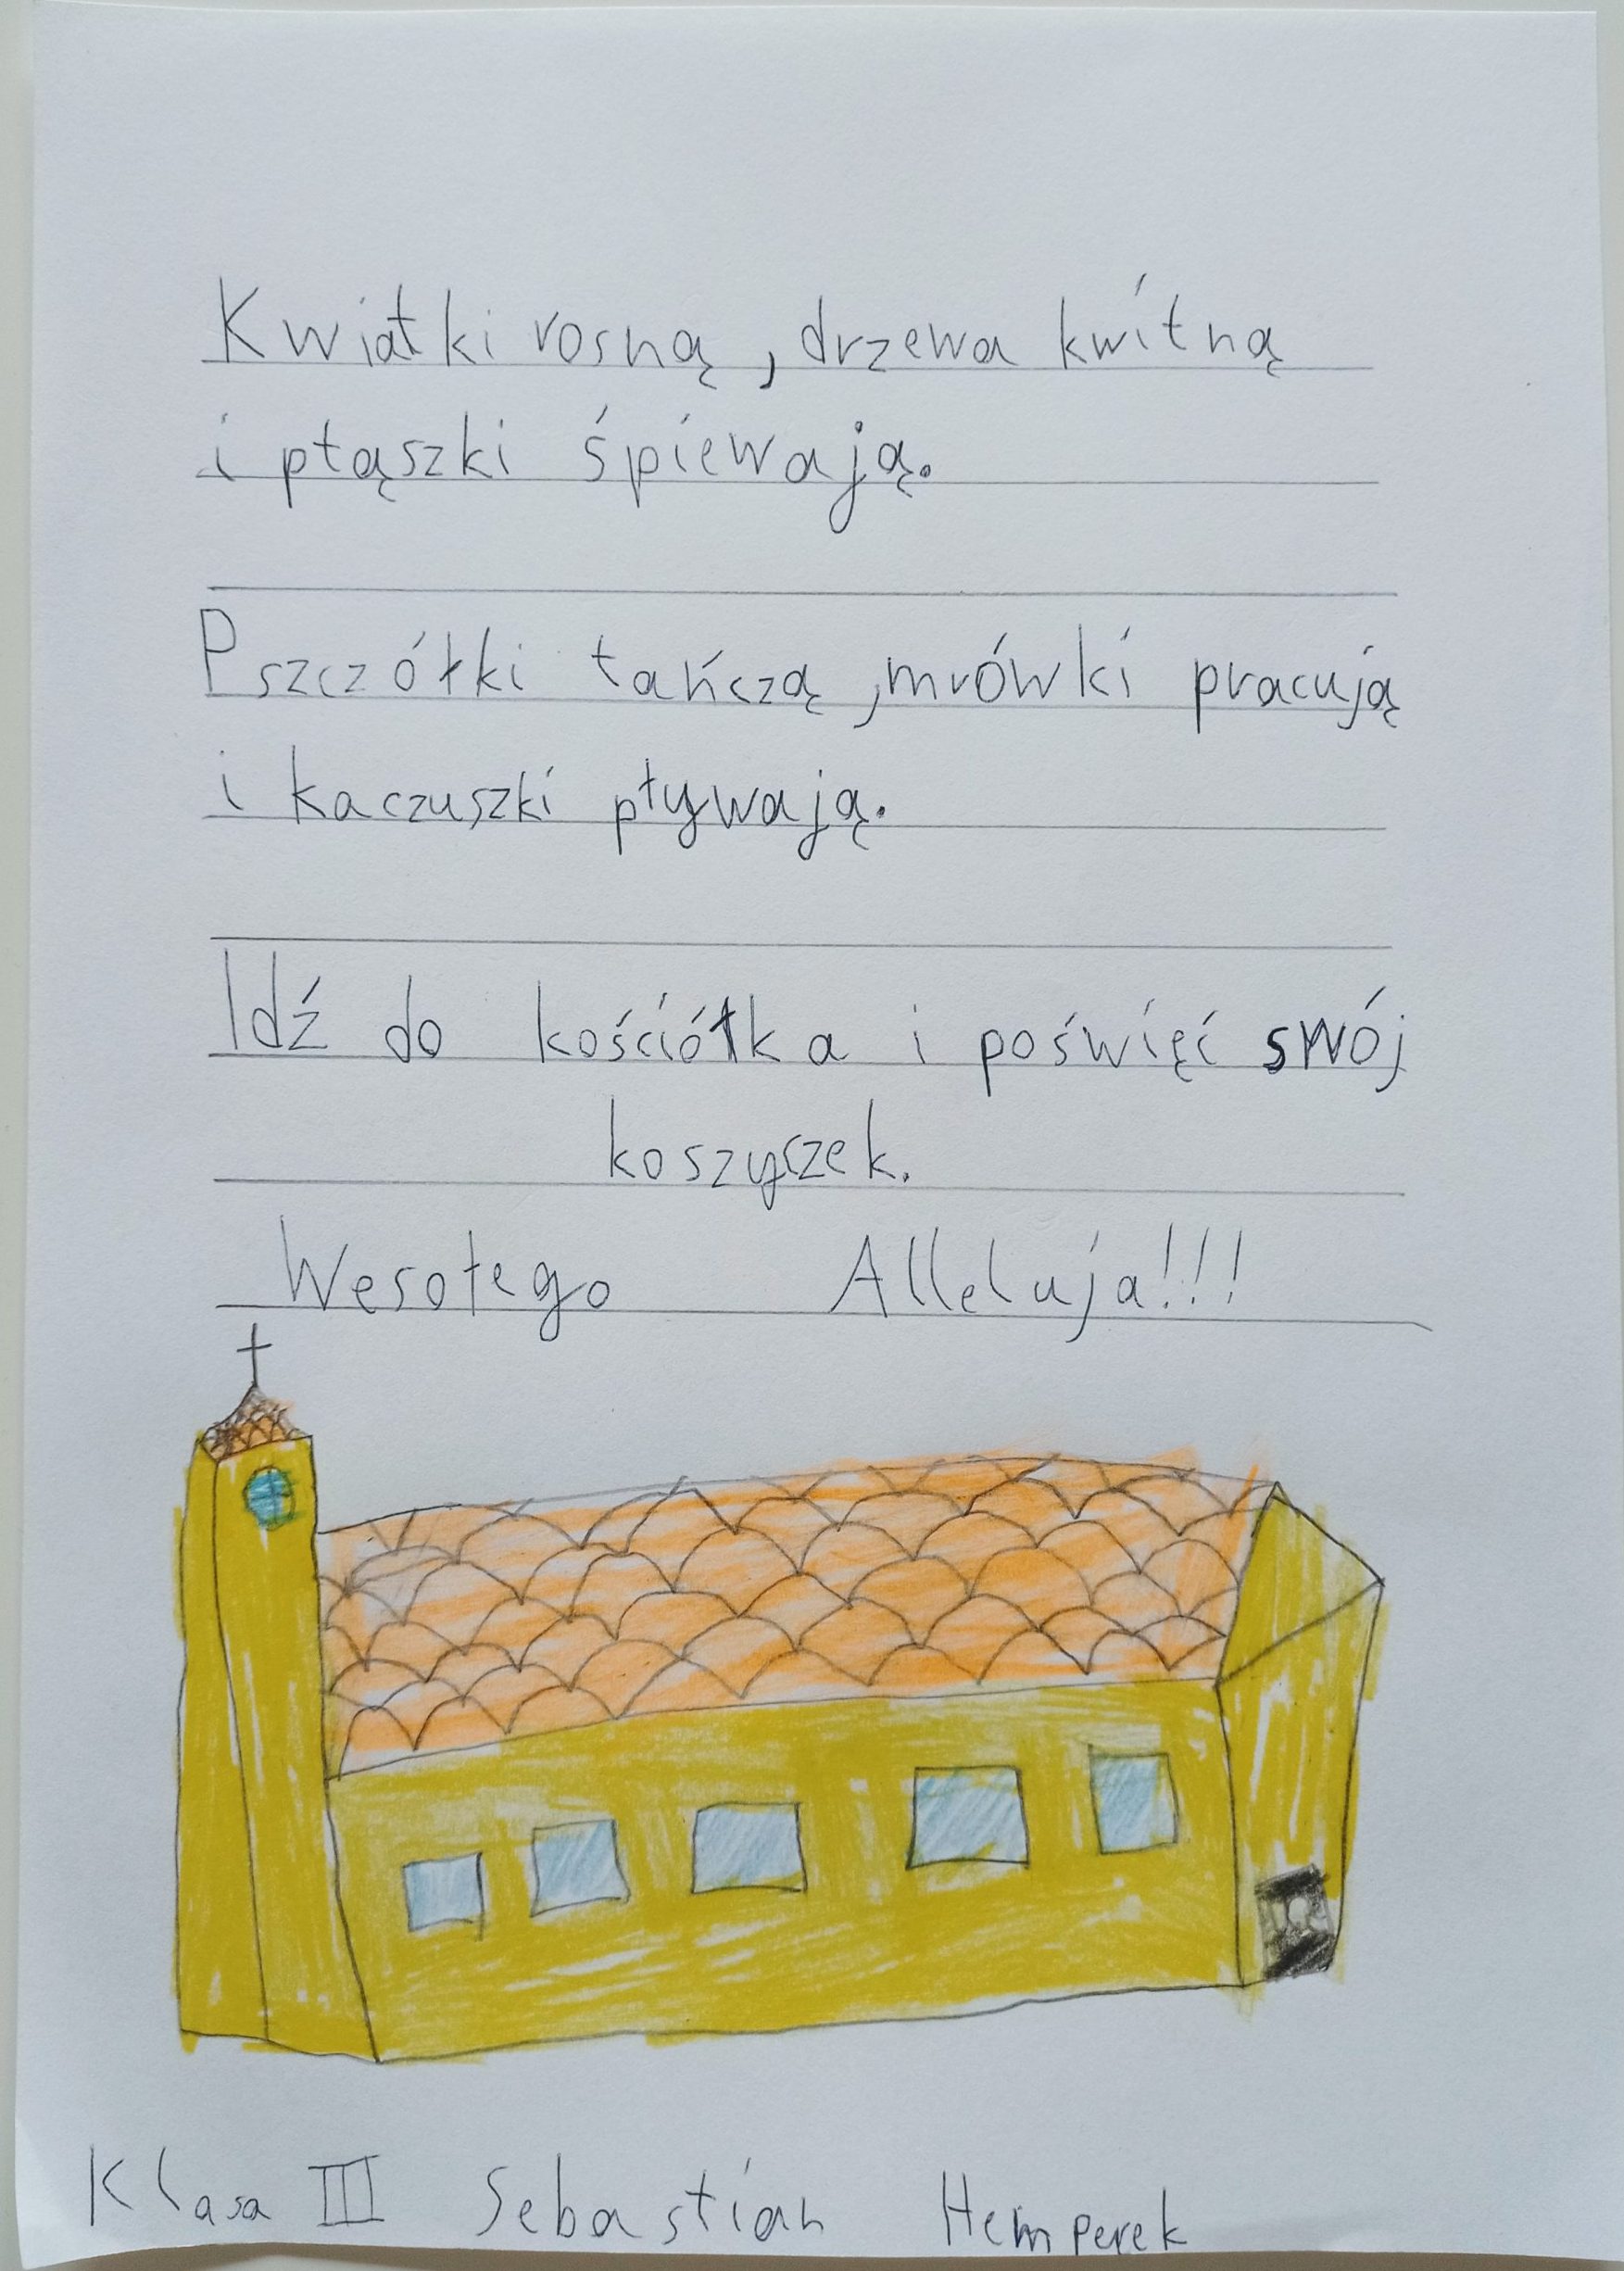 Kwiatki rosną, drzewa kwitną
i ptąszki śpiewają.
Pszczółki tańczą, mrówki pracują
i kaczuszki pływają.
Idź do kościółka i poświęć swój
koszyczek.
Wesołego Alleluja!!!
Klasa III Sebastian Hemperek